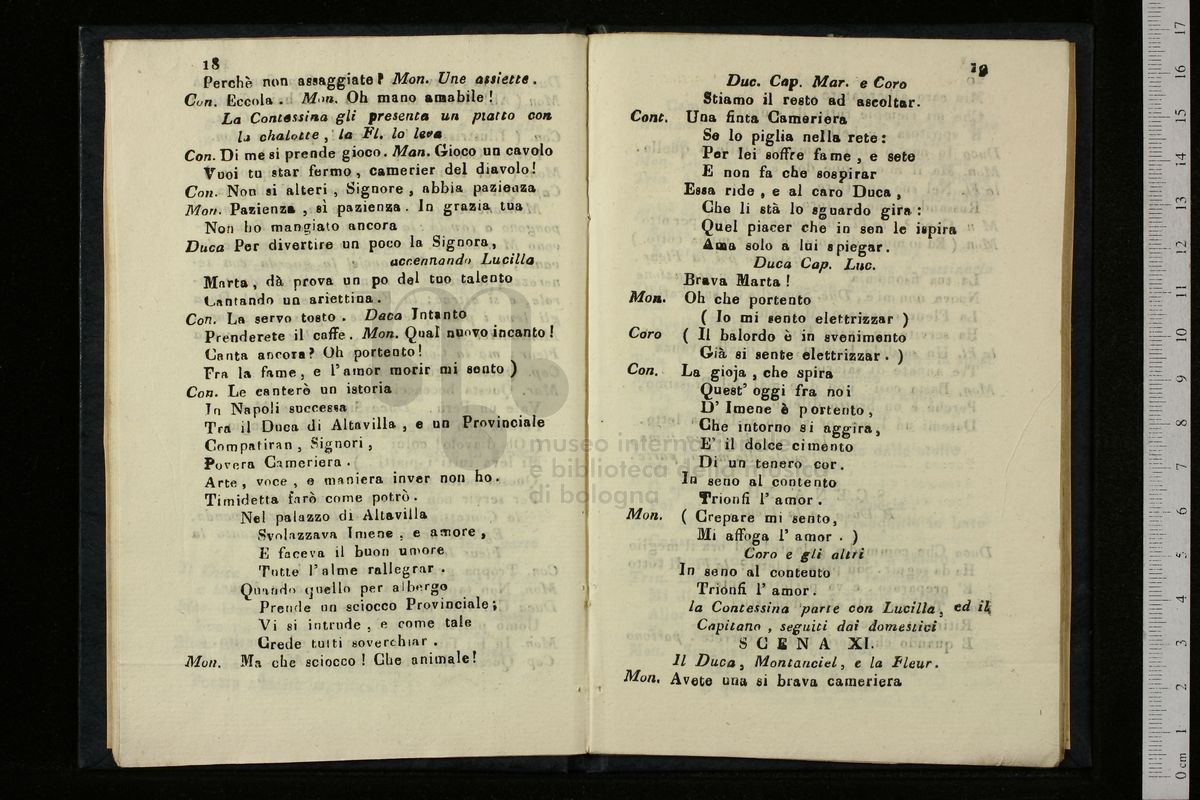 18
Perchè non assaggiate? Mon. Une assiette.
Con. Eccola. Mon. Oh mano amabile!
La Contessina gli presenta un piatto con
la chalotte, la Fl. lo leva
Con. Di me si prende gioco. Man. Gioco un cavolo
Vuoi tu star fermo, camerier del diavolo!
Con. Non si alteri, Signore, abbia pazienza
Mon. Pazienza, sì pazienza. In grazia tua
Non ho mangiato ancora
Duca Per divertire un poco la Signora,
accennando Lucilla
Marta, dà prova un po del tuo talento
Cantando un ariettina.
Con. La servo tosto. Daca Intanto
Prenderete il caffe. Mon. Qual nuovo incanto!
Canta ancora? Oh portento!
Fra la fame, e l'amor morir mi sento)
Con. Le canterò un istoria
In Napoli successa
Tra il Duca di Altavilla, e un Provinciale
Compatiran, Signori,
Povera Cameriera.
Arte, voce, e maniera inver non ho.
Timidetta farò come potrò.
Nel palazzo di Altavilla
Svolazzava Imene, e amore,
E faceva il buon umore
Tutte l'alme rallegrar.
Quando quello per albergo
Prende un sciocco Provinciale;
Vi si intrude, e come tale
Crede tutti soverchiar.
Mon. Ma che sciocco! Che animale!
19
Duc. Cap. Mar. e Coro
Stiamo il resto ad ascoltar.
Cont. Una finta Cameriera
Se lo piglia nella rete:
Per lei soffre fame, e sete
E non fa che sospirar
Essa ride, e al caro Duca,
Che li stà lo sguardo gira:
Quel piacer che in sen le ispira
Ama solo a lui spiegar.
Duca Cap. Luc.
Brava Marta!
Mon. Oh che portento
( Io mi sento elettrizzar )
Coro ( Il balordo è in svenimento
Già si sente elettrizzar. )
Con. La gioja, che spira
Quest' oggi fra noi
D' Imene è portento,
Che intorno si aggira,
E' il dolce cimento
Di un tenero cor.
In seno al contento
Trionfi l' amor.
Mon. ( Crepare mi sento,
Mi affoga l' amor. )
Coro e gli altri
In seno al contento
Trionfi l' amor.
la Contessina parte con Lucilla, ed il
Capitano, seguiti dai domestici
SCENA XI.
Il Duca, Montanciel, e la Fleur.
Mon. Avete una si brava cameriera
museo internazionale
e biblioteca della musica
di bologna
0 cm 1 2 3 4 5 6 7 8 9 10 11 12 13 14 15 16 17